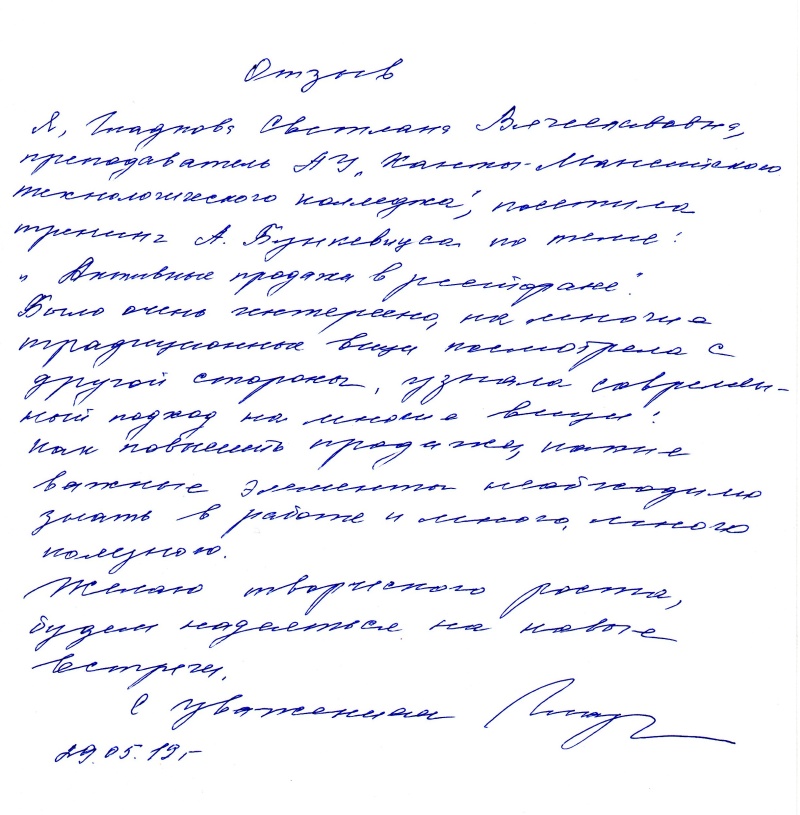 Отзыв
Я, Гладкова Светлана Вячеславовна,
преподаватель АУ „Ханты-Мансийского
технологического колледжа", посетила
тренинг А. Бункевичуса по теме:
„Активные продажи в ресторане".
Было очень интересно, на многие
традиционные вещи посмотрела с
другой стороны, узнала современ-
ный подход на многие вещи:
как повысить продажи, какие
важные элементы необходимо
знать в работе и много, много
полезного.
Желаю творческого роста,
будем надеяться на новые
встречи.
С уважением
29.05.19.-